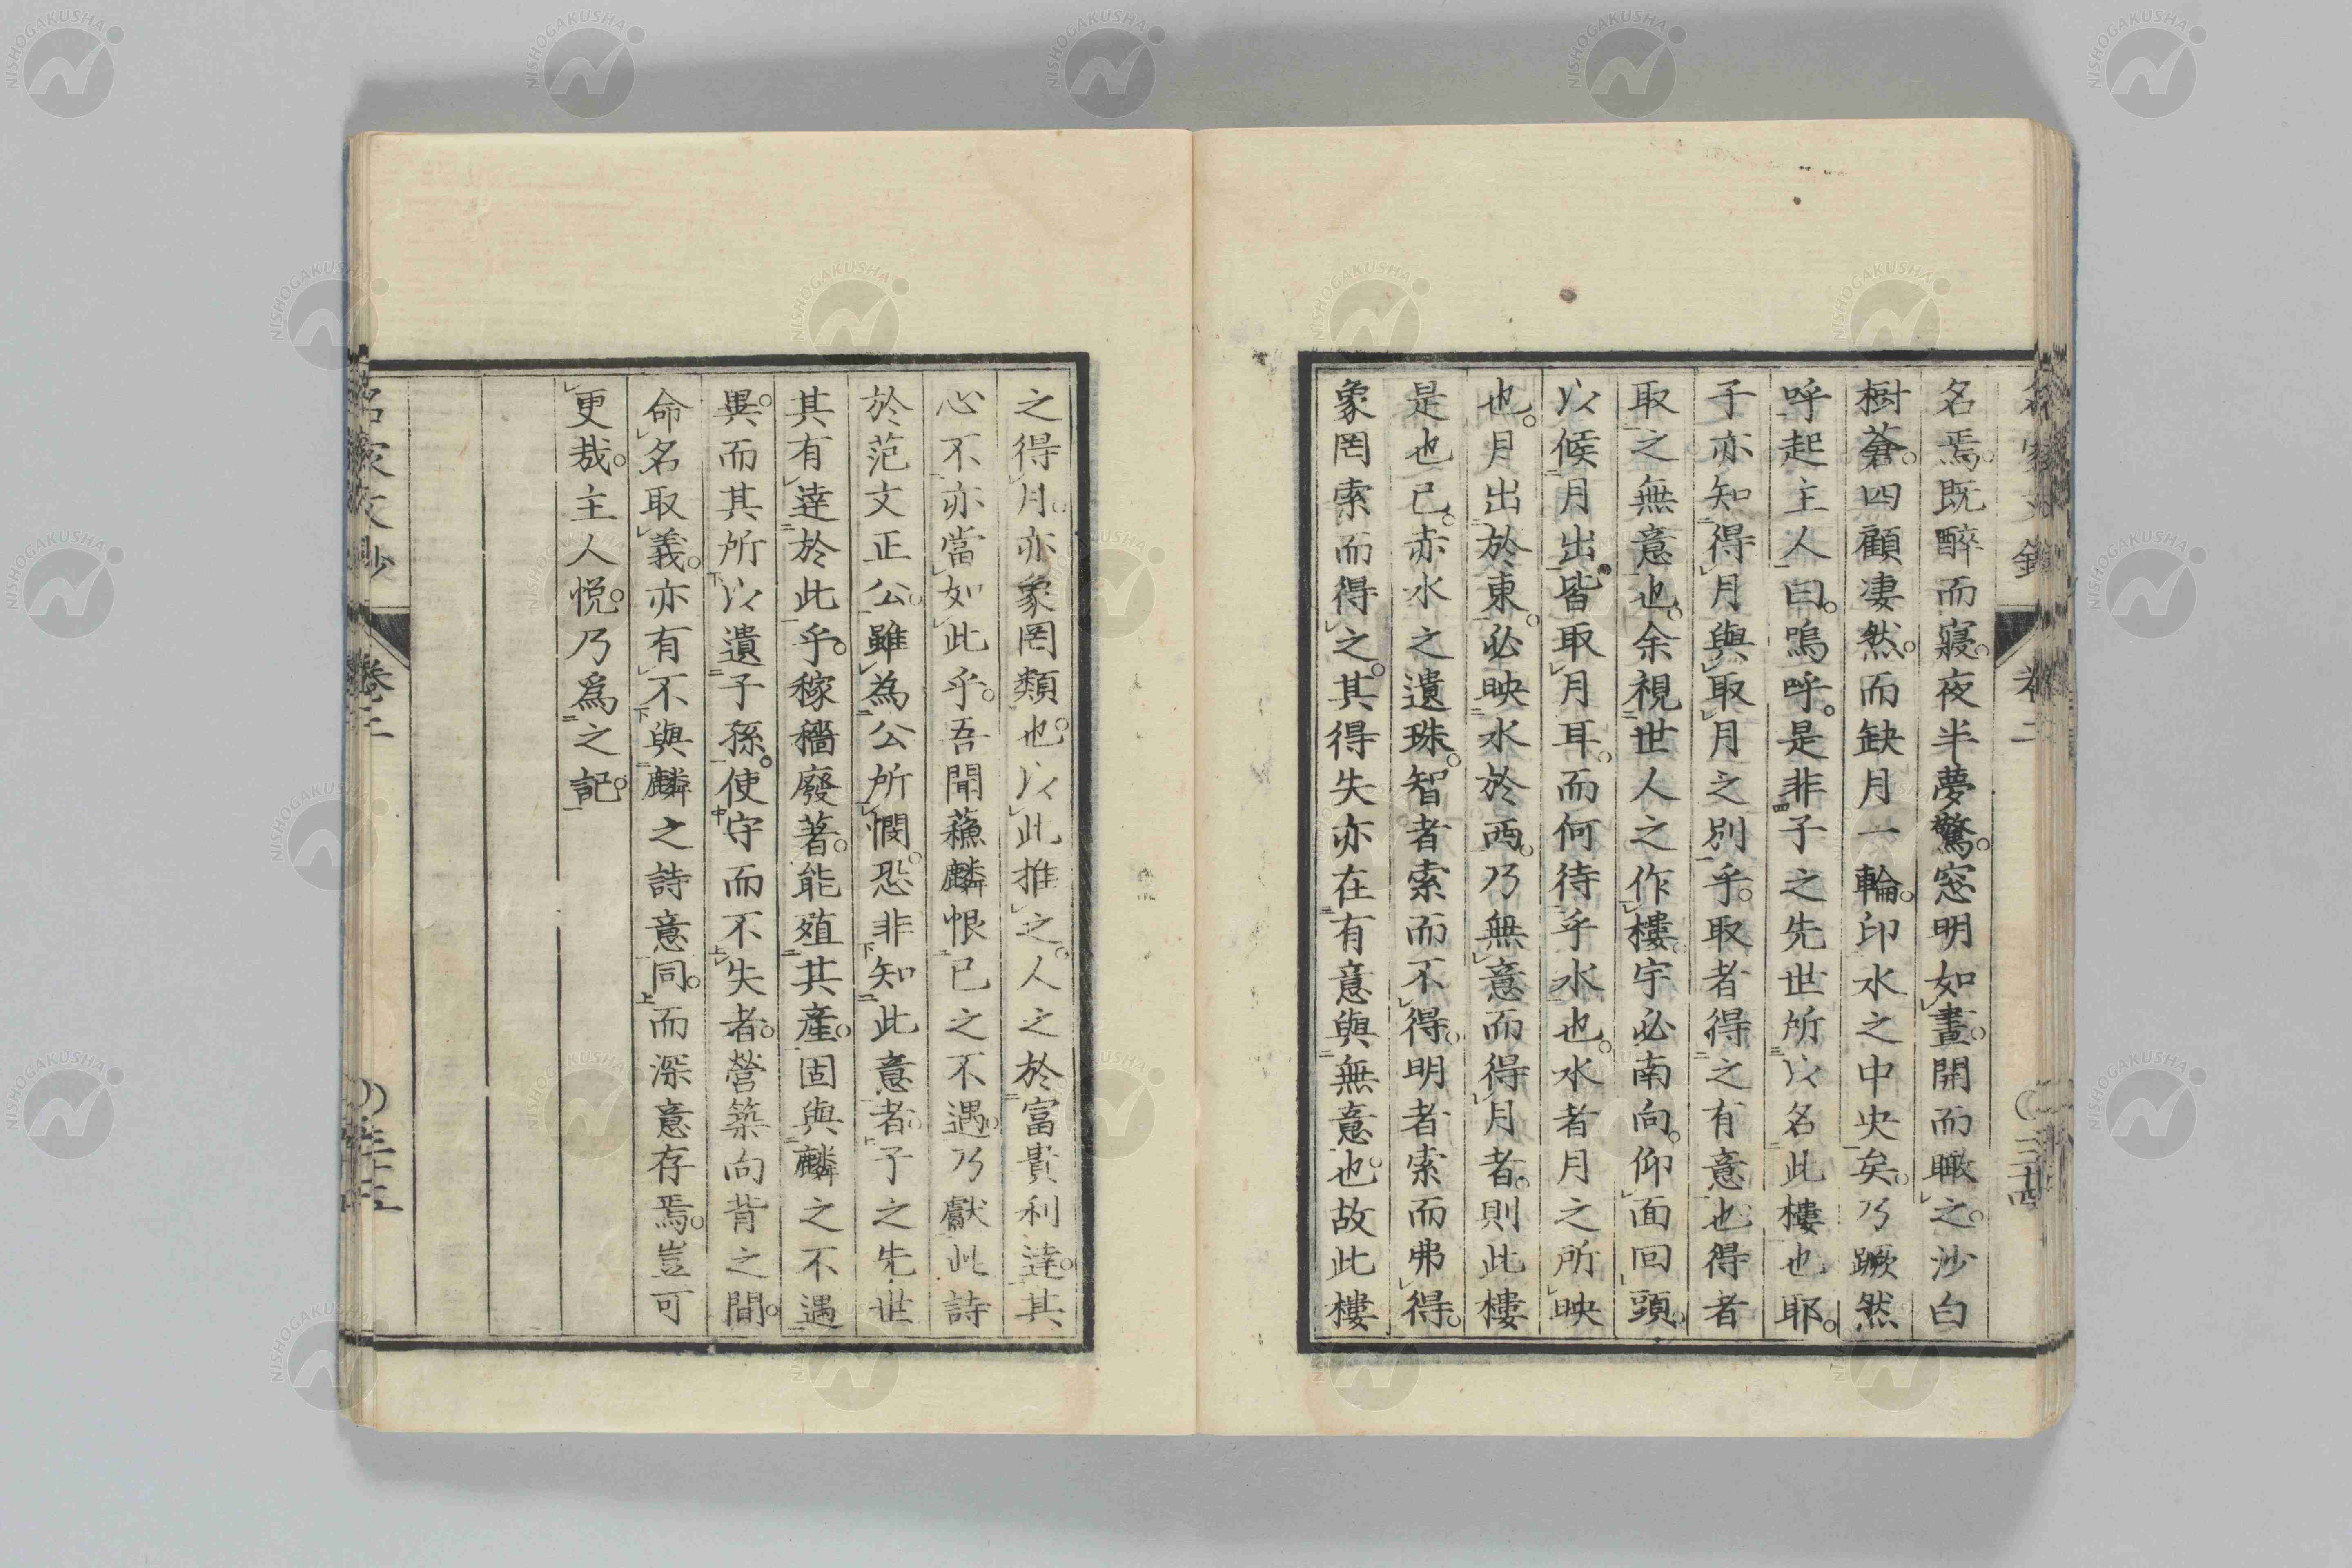 名焉。既醉而寢。夜半夢驚。窓明如晝。開而瞰之。沙白
樹蒼。四顧凄然。而缺月一輪。印水之中央矣。乃蹶然
呼起主人曰。嗚呼。是非子之先世所以名此樓也耶。
子亦知得月與取月之別乎。取者得之有意也得者
取之無意也。余視世人之作樓宇必南向。仰面回頭。
以候月出。皆取月耳。而何待乎水也。水者月之所映
也。月出於東。必映水於西。乃無意而得月者。則此樓
是也已。赤水之遺珠。智者索而不得。明者索而弗得。
象罔索而得之。其得失亦在有意與無意也。故此樓
之得月。亦象罔類也。以此推之。人之於富貴利達。其
心不亦當如此乎。吾聞蘓麟恨已之不遇。乃獻此詩
於范文正公。雖為公所憫。恐非知此意者。子之先世
其有達於此乎。稼穡廢著。能殖其產。固與麟之不遇
異。而其所以遺子孫。使守而不失者。營築向背之間。
命名取義。亦有不與麟之詩意同。而深意存焉。豈可
更哉。主人悅。乃爲之記。
名家文鈔
卷二
三十五
卷二
三十四
NISHOGAKUSHA